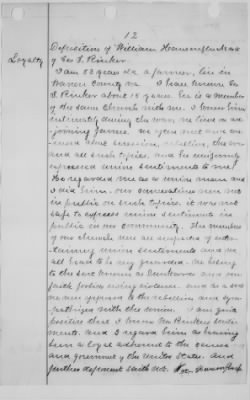 12
Loyalty
Deposition of William
of Geo. S. Rinker
I am 53 years old, a farmer, live in
County Va. I have known Geo
S. Rinker about 15 years. He is a member
of the same Church with me. I knew him
intimately during the war, we lived on ad-
joining farms. We often met and con-
versed about secession, rebellion, the war
and all such topics, and he uniformly
expressed union sentiments to me.
He regarded me as a union man and
I did him. Our conversations were not
in public on such topics, it was not
safe to express union sentiments in
public in our community. The members
of our church were all suspected of enter-
taining union sentiments and we
all had to be very guarded. We belong
to the sect known as Dunkards and our
faith forbids using violence and as a sect
we were opposed to the rebellion and sym-
pathizing with the union. I am quite
positive that I knew Mr Rinkers senti-
ments, and I regard him as having
been a loyal adherent to the cause
and government of the United States. And
further deponent saith not.